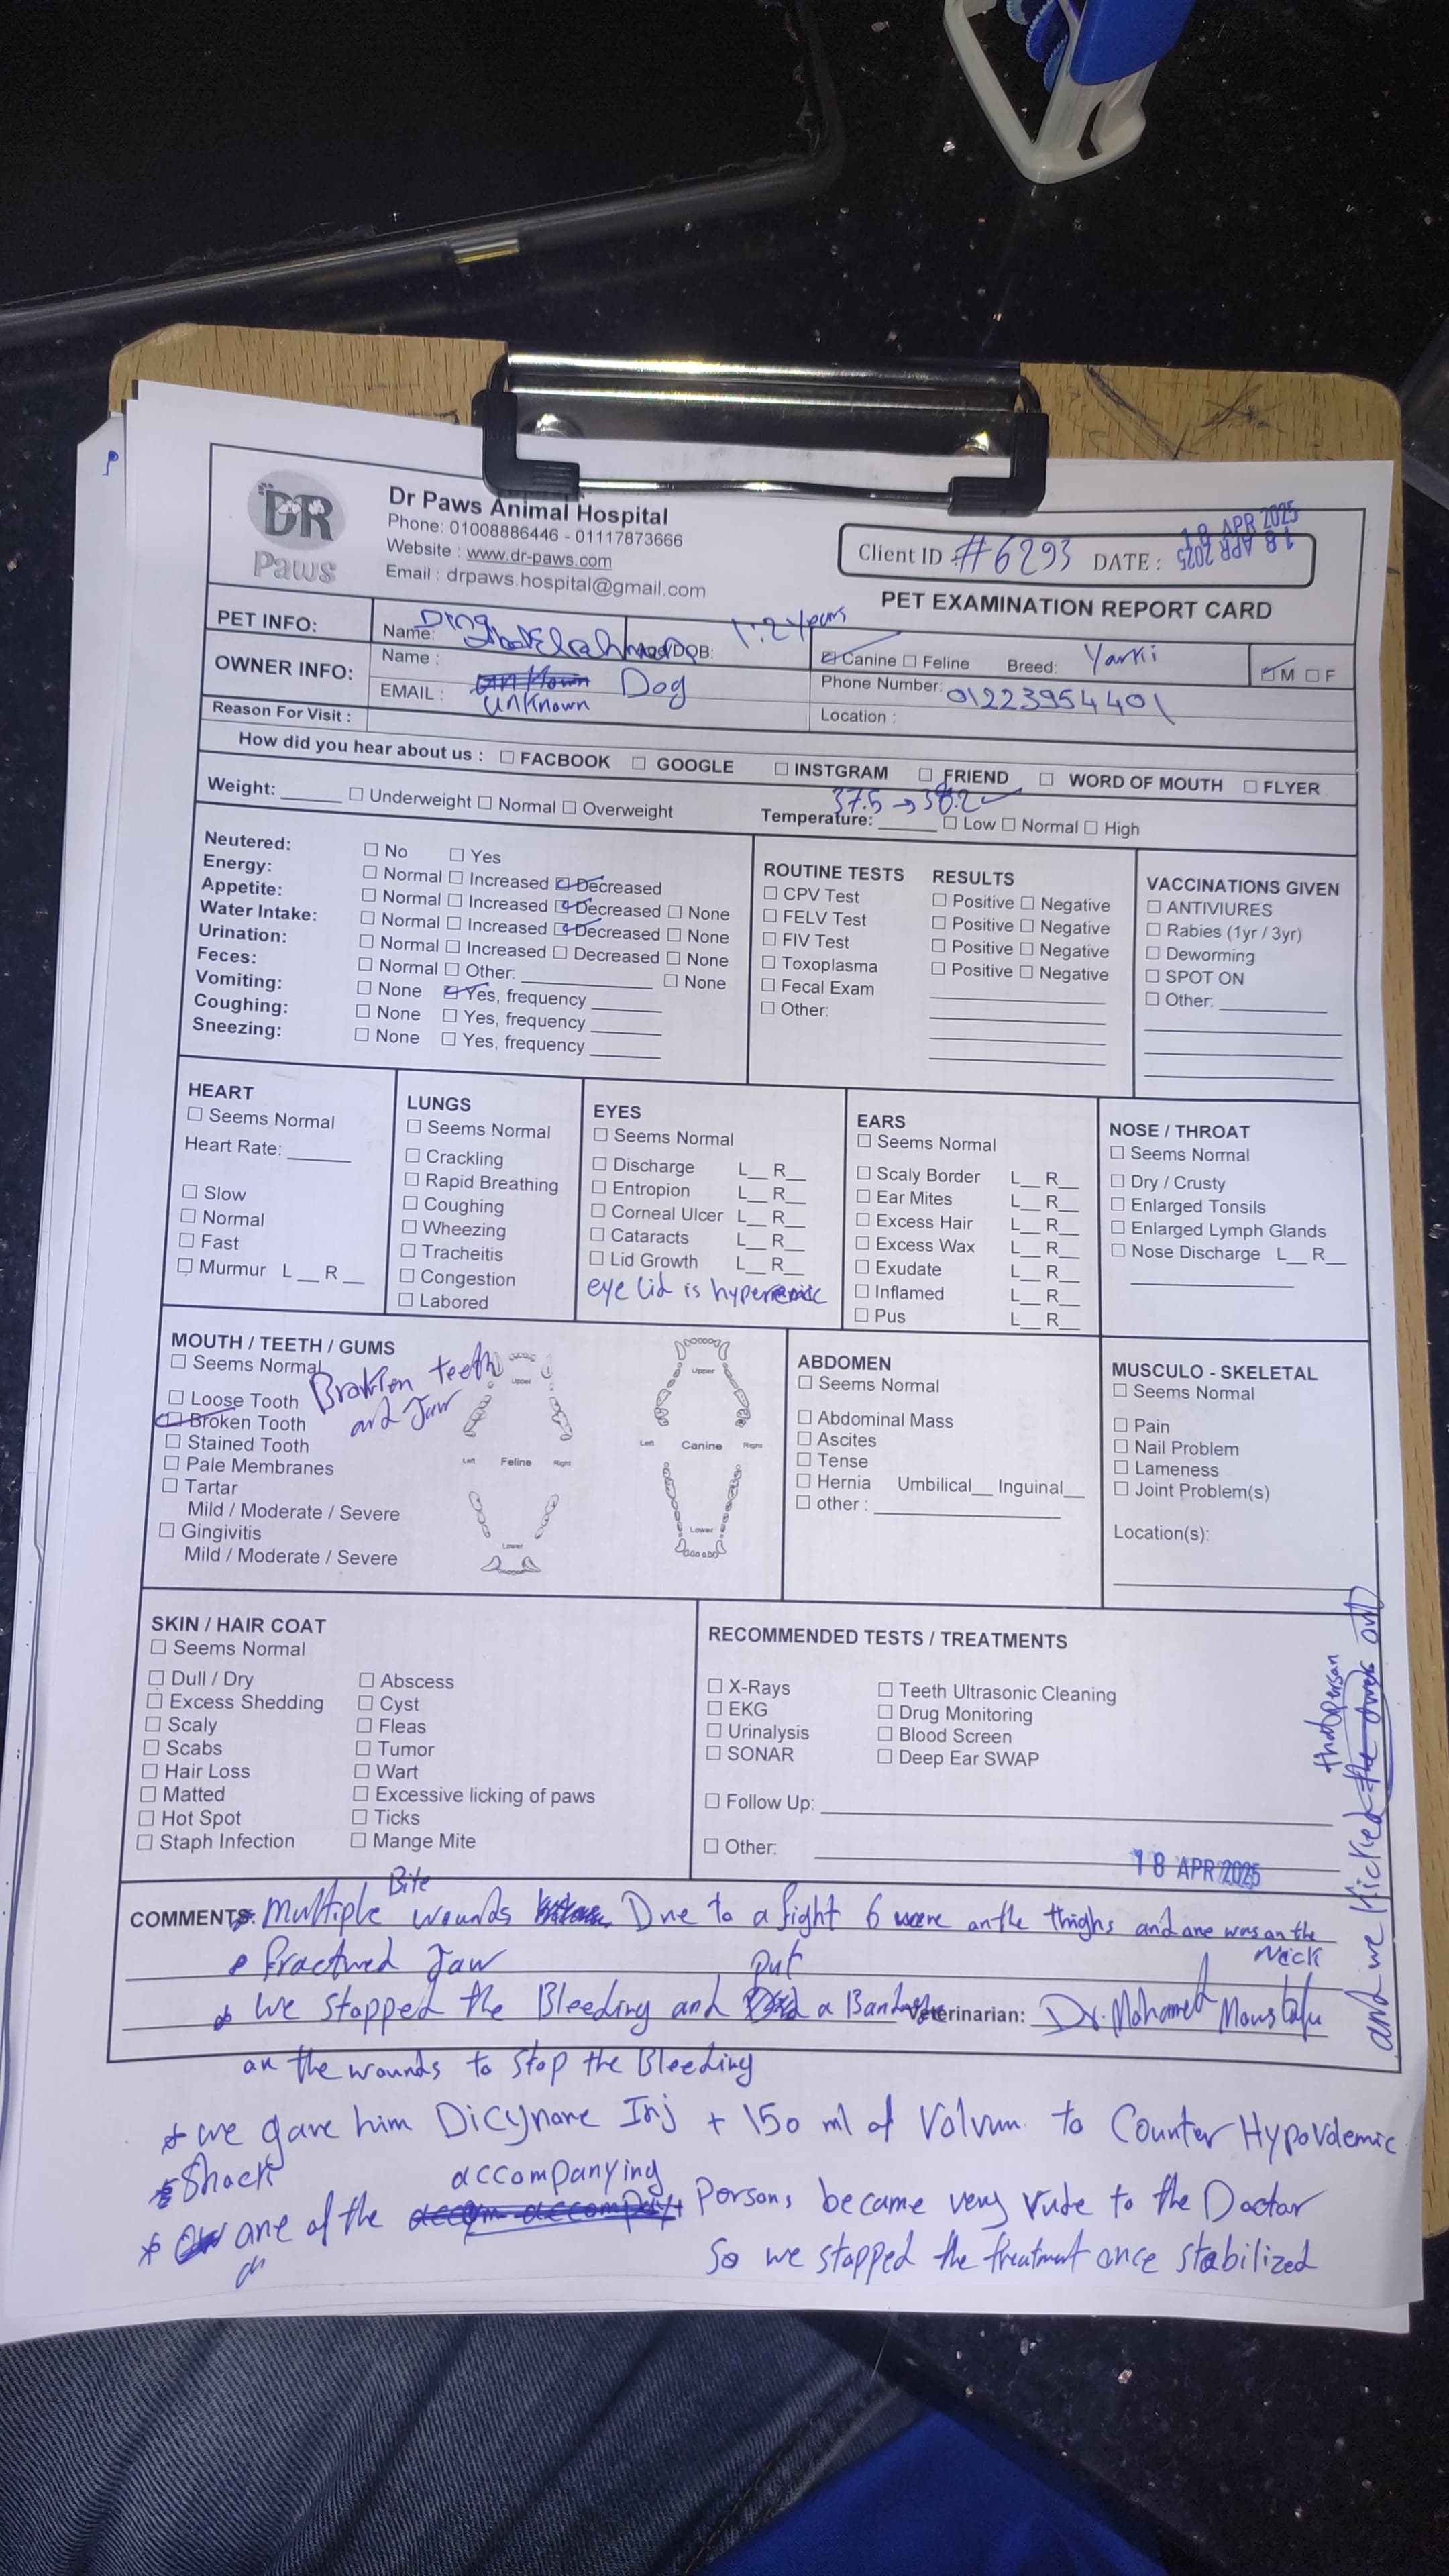 DR
Paws
Dr Paws Animal Hospital
Phone: 01008886446 - 01117873666
Website : www.dr-paws.com
Email : drpaws.hospital@gmail.com
Client ID #6293 DATE : 18 APR 2025
18 APR 2025
PET EXAMINATION REPORT CARD
PET INFO:
Name: Ding
Age/DOB: 1.2 years
☑ Canine ☐ Feline Breed: Yarkii
☑ M ☐ F
OWNER INFO:
Name :
EMAIL : unknown Dog
Phone Number: 01223954401
Location :
Reason For Visit :
How did you hear about us : ☐ FACBOOK ☐ GOOGLE ☐ INSTGRAM ☐ FRIEND ☐ WORD OF MOUTH ☐ FLYER
Weight: ______ ☐ Underweight ☐ Normal ☐ Overweight
37.5 → 38.2
Temperature: ______ ☐ Low ☐ Normal ☐ High
Neutered: ☐ No ☐ Yes
Energy: ☐ Normal ☐ Increased ☑ Decreased
Appetite: ☐ Normal ☐ Increased ☑ Decreased ☐ None
Water Intake: ☐ Normal ☐ Increased ☑ Decreased ☐ None
Urination: ☐ Normal ☐ Increased ☐ Decreased ☐ None
Feces: ☐ Normal ☐ Other: ______ ☐ None
Vomiting: ☐ None ☑ Yes, frequency ______
Coughing: ☐ None ☐ Yes, frequency ______
Sneezing: ☐ None ☐ Yes, frequency ______
ROUTINE TESTS RESULTS
☐ CPV Test ☐ Positive ☐ Negative
☐ FELV Test ☐ Positive ☐ Negative
☐ FIV Test ☐ Positive ☐ Negative
☐ Toxoplasma ☐ Positive ☐ Negative
☐ Fecal Exam
☐ Other:
VACCINATIONS GIVEN
☐ ANTIVIURES
☐ Rabies (1yr / 3yr)
☐ Deworming
☐ SPOT ON
☐ Other: ______
HEART
☐ Seems Normal
Heart Rate: ______
☐ Slow
☐ Normal
☐ Fast
☐ Murmur L __ R __
LUNGS
☐ Seems Normal
☐ Crackling
☐ Rapid Breathing
☐ Coughing
☐ Wheezing
☐ Tracheitis
☐ Congestion
☐ Labored
EYES
☐ Seems Normal
☐ Discharge L__ R__
☐ Entropion L__ R__
☐ Corneal Ulcer L__ R__
☐ Cataracts L__ R__
☐ Lid Growth L__ R__
eye lid is hyperemic
EARS
☐ Seems Normal
☐ Scaly Border L__ R__
☐ Ear Mites L__ R__
☐ Excess Hair L__ R__
☐ Excess Wax L__ R__
☐ Exudate L__ R__
☐ Inflamed L__ R__
☐ Pus L__ R__
NOSE / THROAT
☐ Seems Normal
☐ Dry / Crusty
☐ Enlarged Tonsils
☐ Enlarged Lymph Glands
☐ Nose Discharge L__ R__
MOUTH / TEETH / GUMS
☐ Seems Normal
☐ Loose Tooth
☑ Broken Tooth
☐ Stained Tooth
☐ Pale Membranes
☐ Tartar
Mild / Moderate / Severe
☐ Gingivitis
Mild / Moderate / Severe
teeth
and Jaw
Upper
Left Feline Right
Lower
Upper
Left Canine Right
Lower
ABDOMEN
☐ Seems Normal
☐ Abdominal Mass
☐ Ascites
☐ Tense
☐ Hernia Umbilical__ Inguinal__
☐ other : ______
MUSCULO - SKELETAL
☐ Seems Normal
☐ Pain
☐ Nail Problem
☐ Lameness
☐ Joint Problem(s)
Location(s):
SKIN / HAIR COAT
☐ Seems Normal
☐ Dull / Dry ☐ Abscess
☐ Excess Shedding ☐ Cyst
☐ Scaly ☐ Fleas
☐ Scabs ☐ Tumor
☐ Hair Loss ☐ Wart
☐ Matted ☐ Excessive licking of paws
☐ Hot Spot ☐ Ticks
☐ Staph Infection ☐ Mange Mite
RECOMMENDED TESTS / TREATMENTS
☐ X-Rays ☐ Teeth Ultrasonic Cleaning
☐ EKG ☐ Drug Monitoring
☐ Urinalysis ☐ Blood Screen
☐ SONAR ☐ Deep Ear SWAP
☐ Follow Up:
☐ Other:
18 APR 2025
COMMENTS: multiple Bite wounds Due to a fight 6 were on the thighs and one was on the Neck
Fractured Jaw
we stopped the Bleeding and put a Bandage
Veterinarian: Dr. Mohamed Moustafa
on the wounds to stop the Bleeding
we gave him Dicynone Inj + 150 ml of Volvum to Counter Hypovolemic
Shock
one of the accompanying Persons became very rude to the Doctor
So we stopped the treatment once stabilized
and we kicked that person out